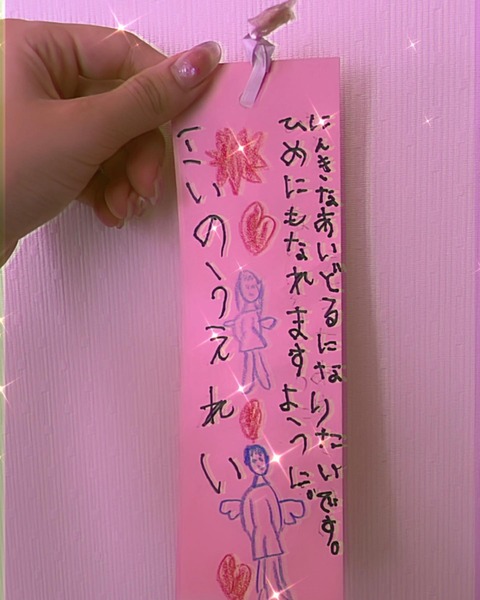 にんきなあいどるになりたいです。
ひめにもなれますように。
にいのうえれい